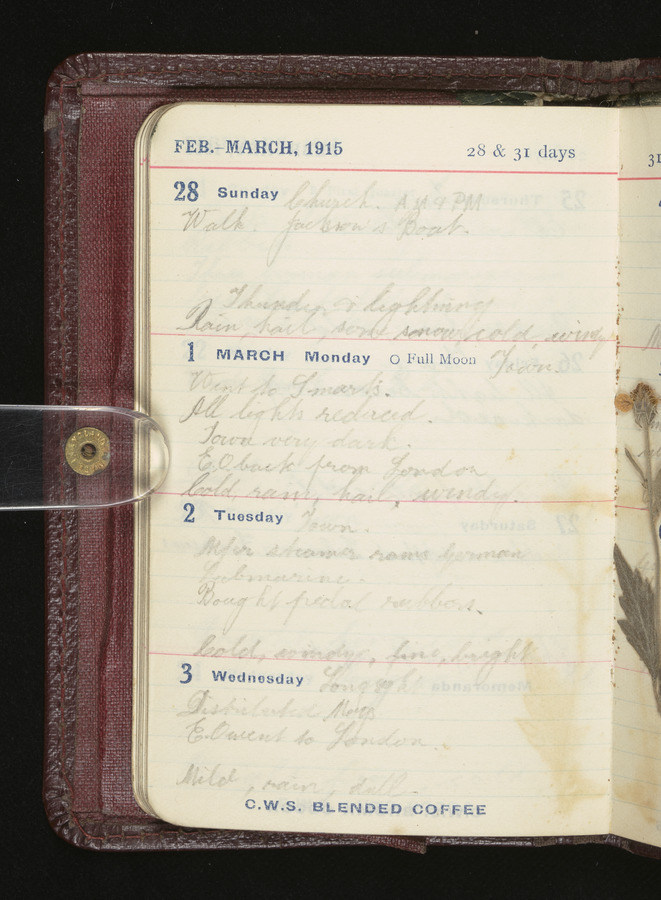 FEB.–MARCH, 1915 28 & 31 days
28 Sunday Church. A M & PM
Walk. Jackson's Boat.
Thunder & lightning
Rain, hail, some snow, cold, windy
1 MARCH Monday O Full Moon Town.
Went to Smarts.
All lights reduced.
Town very dark.
E.O back from London
Cold, rain, hail, windy.
2 Tuesday Town.
Mfer steamer rams German
Submarine.
Bought pedal rubbers.
Cold, windy, fine, bright
3 Wednesday Longsight
Distributed Mags
E.O went to London.
Mild, rain, dull.
C.W.S. BLENDED COFFEE